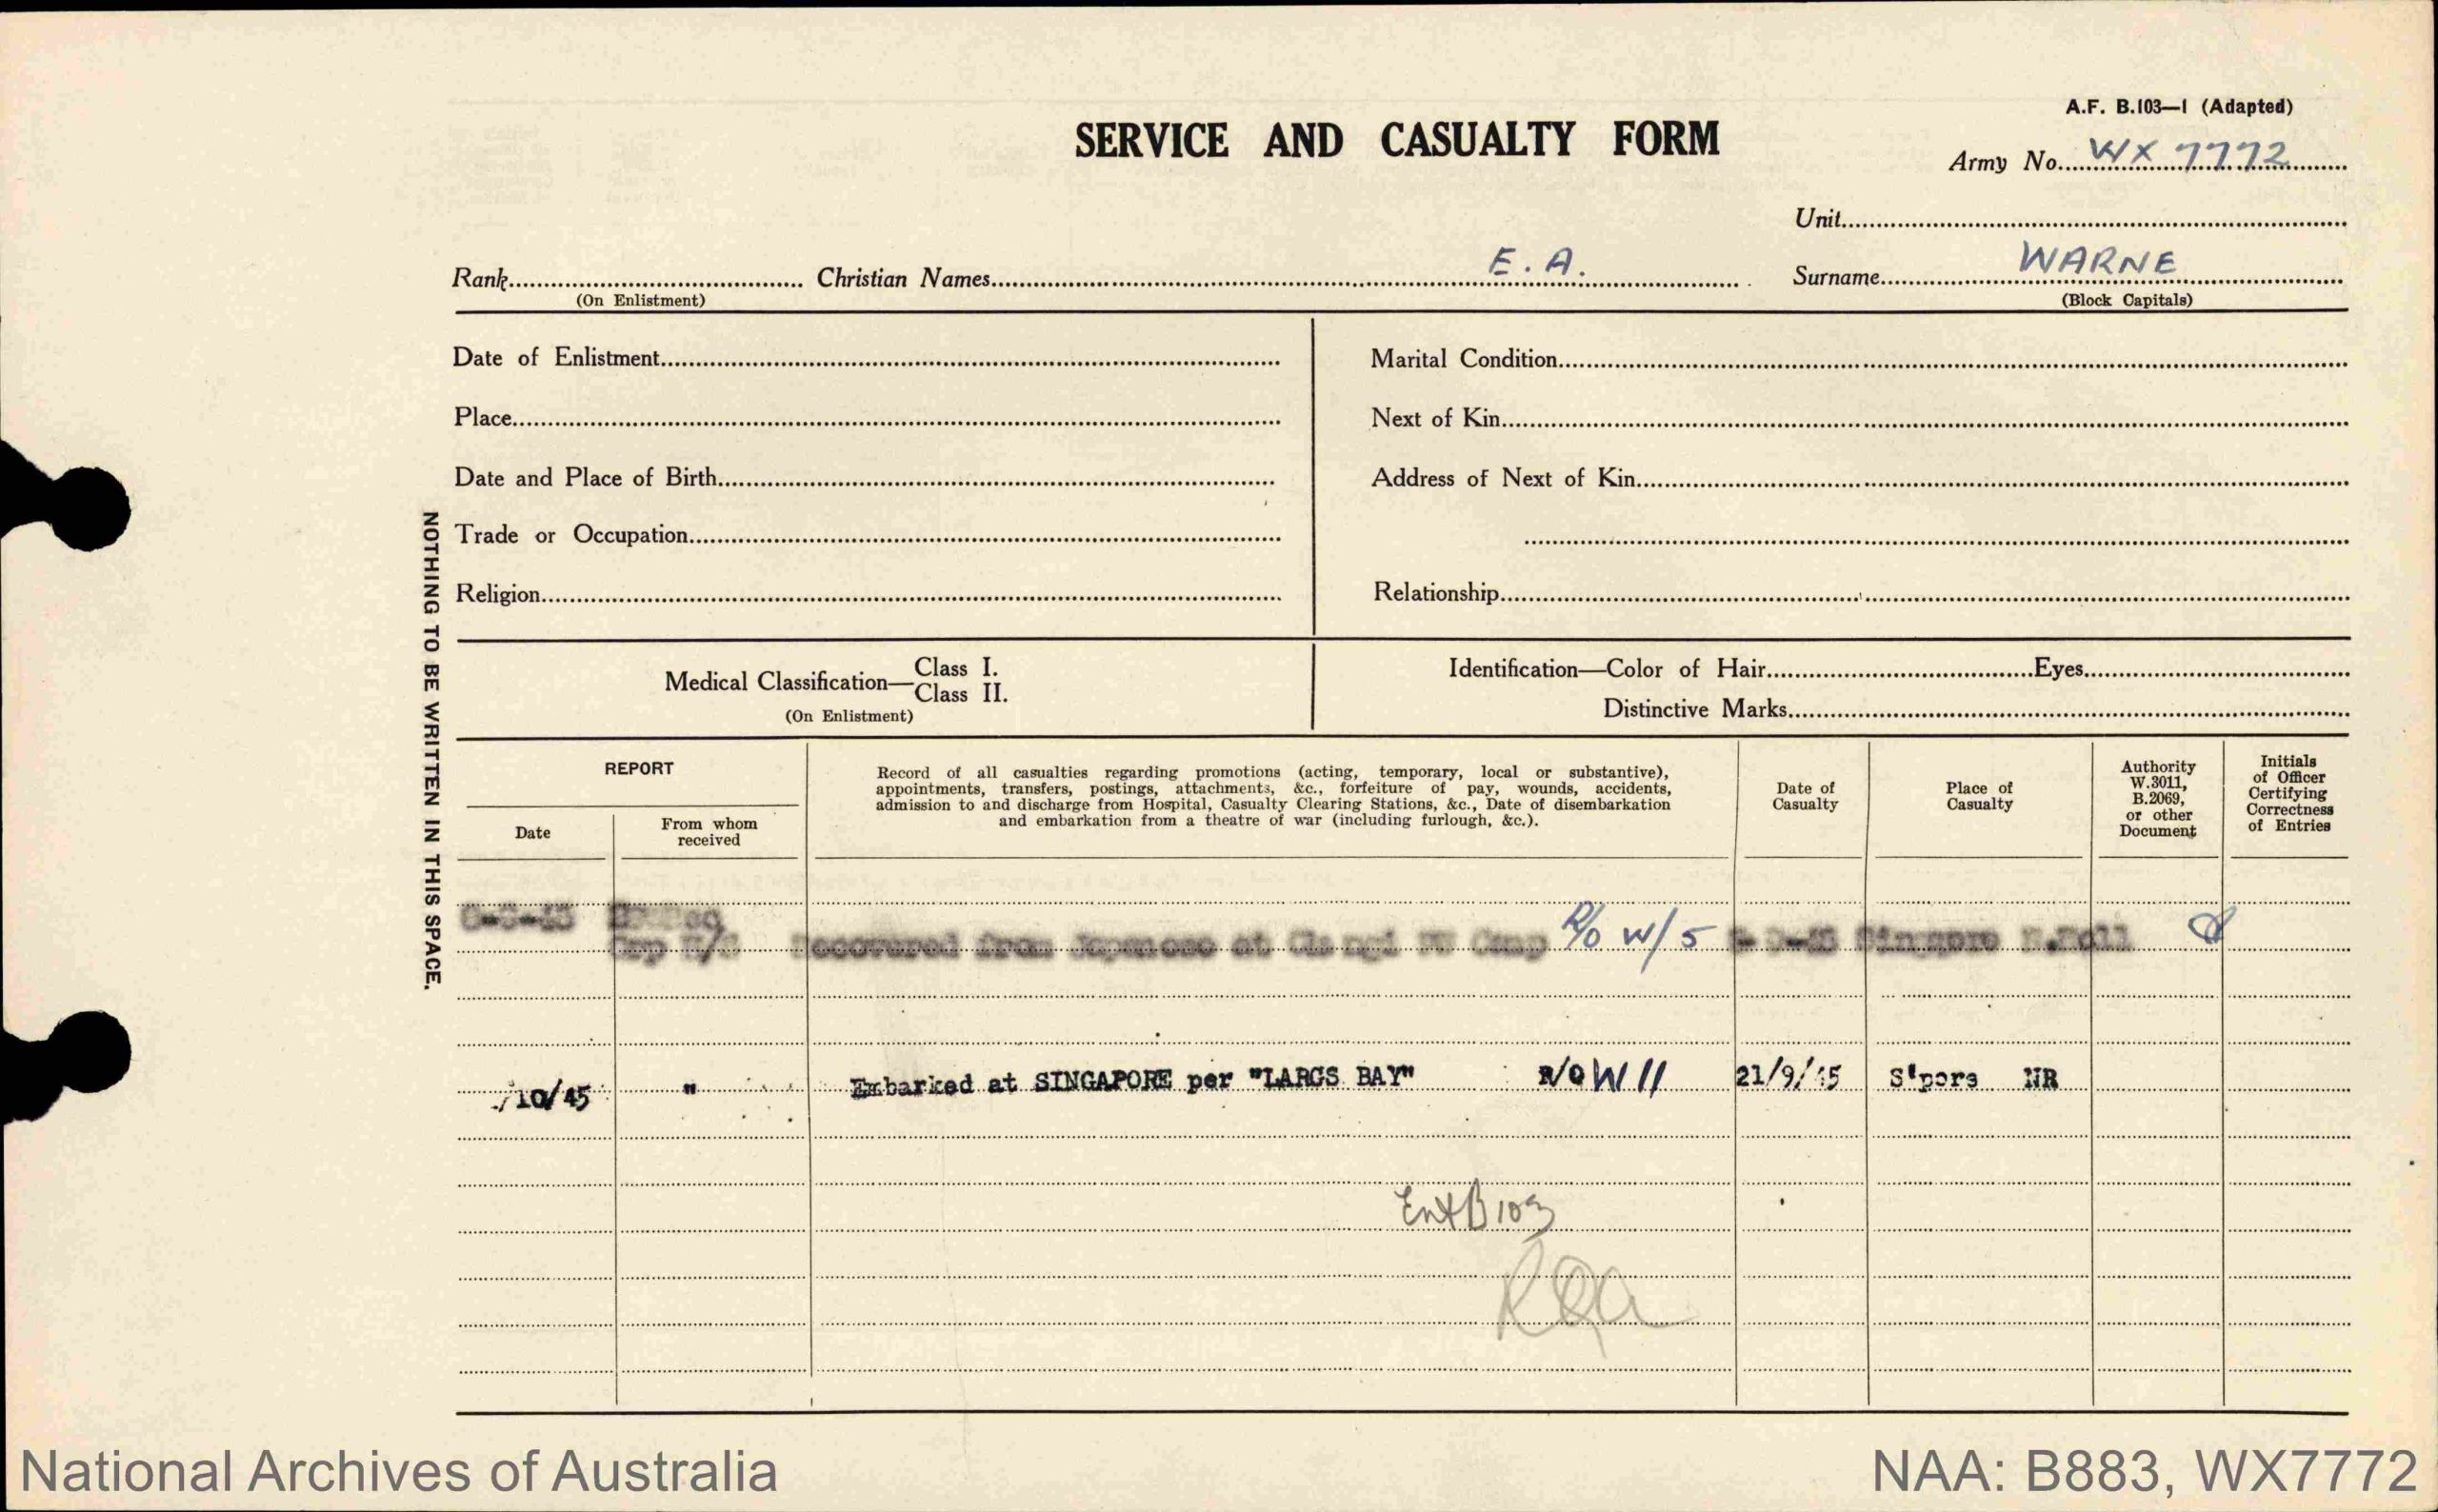 A.F. B.103—1 (Adapted)
SERVICE AND CASUALTY FORM
Army No. WX 7772
Unit
Rank Christian Names E. A. Surname WARNE
(On Enlistment) (Block Capitals)
Date of Enlistment Marital Condition
Place Next of Kin
Date and Place of Birth Address of Next of Kin
Trade or Occupation
Religion Relationship
Medical Classification— Class I. Class II.
(On Enlistment)
Identification—Color of Hair Eyes
Distinctive Marks
NOTHING TO BE WRITTEN IN THIS SPACE.
REPORT
Date
From whom received
Record of all casualties regarding promotions (acting, temporary, local or substantive),
appointments, transfers, postings, attachments, &c., forfeiture of pay, wounds, accidents,
admission to and discharge from Hospital, Casualty Clearing Stations, &c., Date of disembarkation
and embarkation from a theatre of war (including furlough, &c.).
Date of Casualty
Place of Casualty
Authority W.3011, B.2069, or other Document
Initials of Officer Certifying Correctness of Entries
Recovered from Japanese at Changi PW Camp R/O W/5
/10/45 " Embarked at SINGAPORE per "LARGS BAY" R/O W 11 21/9/45 S'pore NR
Ent B103
National Archives of Australia
NAA: B883, WX7772